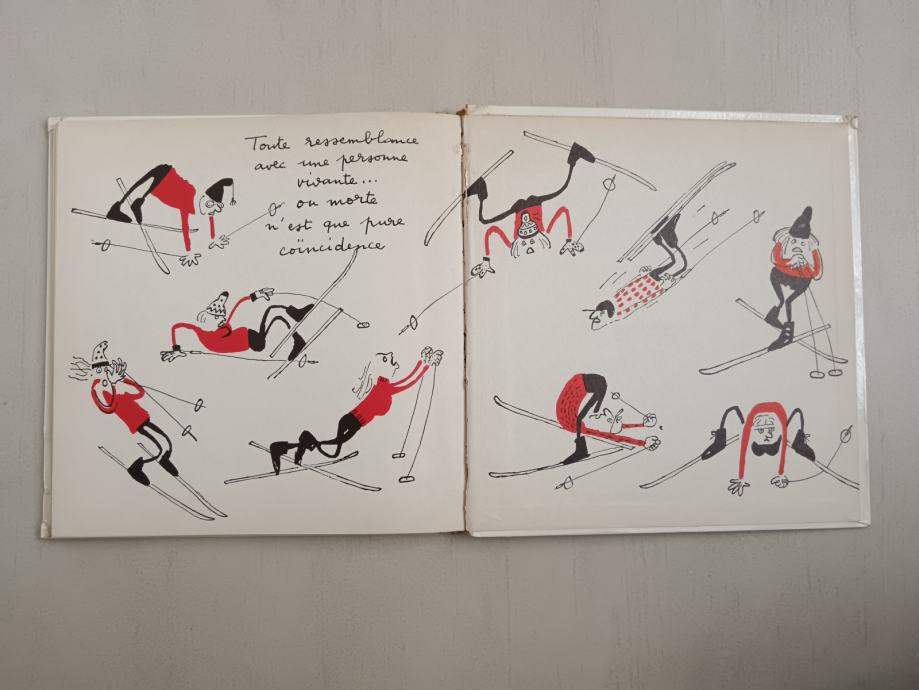 Toute ressemblance
avec une personne
vivante...
ou morte
n'est que pure
coïncidence